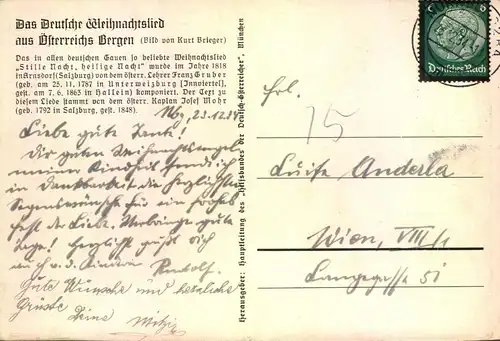 Das Deutsche Weihnachtslied
aus Österreichs Bergen (Bild von Kurt Brieger)
Das in allen deutschen Gauen so beliebte Weihnachtslied
„Stille Nacht, heilige Nacht" wurde im Jahre 1818
in Arnsdorf (Salzburg) von dem österr. Lehrer Franz Gruber
(geb. am 25. 11. 1787 in Unterweizburg [Innviertel],
gest. am 7. 6. 1863 in Hallein) komponiert. Der Text zu
diesem Liede stammt von dem österr. Kaplan Josef Mohr
(geb. 1792 in Salzburg, gest. 1848).
Nbg, 23.12.34
Liebe gute Tante!
Dir guten Weihnachtsengel
meiner Kindheit sende ich
in Dankbarkeit die herzlichsten
Segenswünsche für ein frohes
Fest der Liebe. Verbringe gute
Tage! Herzlichst grüßt Dich
auch v. d. Kindern Rudolf.
Gute Wünsche und herzliche
Grüsse Deine Mitzi
Herausgeber: Hauptleitung des „Hilfsbundes der Deutsch-Österreicher", München
Deutsches Reich
Frl.
75
Luise Anderla
Wien, VIII/1
Langegasse 51